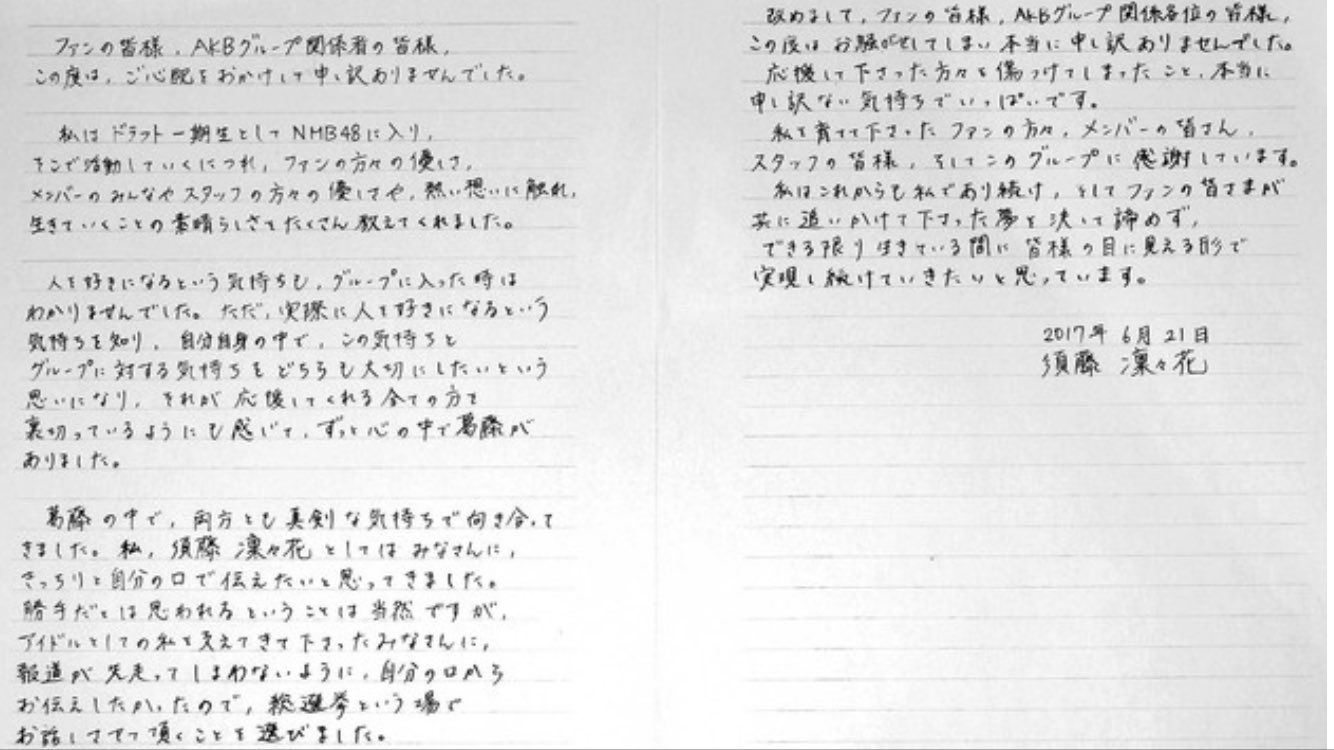 ファンの皆様、AKBグループ関係者の皆様、
この度は、ご心配をおかけして申し訳ありませんでした。
私はドラフト一期生としてNMB48に入り、
そこで活動していくにつれ、ファンの方々の優しさ、
メンバーのみんなやスタッフの方々の優しさや、熱い想いに触れ、
生きていくことの素晴らしさをたくさん教えてくれました。
人を好きになるという気持ちも、グループに入った時は
わかりませんでした。ただ、実際に人を好きになるという
気持ちを知り、自分自身の中で、この気持ちと
グループに対する気持ちをどちらも大切にしたいという
思いになり、それが応援してくれる全ての方を
裏切っているようにも感じて、ずっと心の中で葛藤が
ありました。
葛藤の中で、両方とも真剣な気持ちで向き合って
きました。私、須藤凜々花としてはみなさんに、
きっちりと自分の口で伝えたいと思ってきました。
勝手だとは思われるということは当然ですが、
アイドルとしての私を支えてきて下さったみなさんに、
報道が先走ってしまわないように、自分の口から
お伝えしたかったので、総選挙という場で
お話しさせて頂くことを選びました。
改めまして、ファンの皆様、AKBグループ関係各位の皆様、
この度はお騒がせしてしまい本当に申し訳ありませんでした。
応援して下さった方々を傷つけてしまったこと、本当に
申し訳ない気持ちでいっぱいです。
私を育てて下さったファンの方々、メンバーの皆さん、
スタッフの皆様、そしてこのグループに感謝しています。
私はこれからも私であり続け、そしてファンの皆さまが
共に追いかけて下さった夢を決して諦めず、
できる限り生きている間に皆様の目に見える形で
実現し続けていきたいと思っています。
2017年6月21日
須藤 凜々花